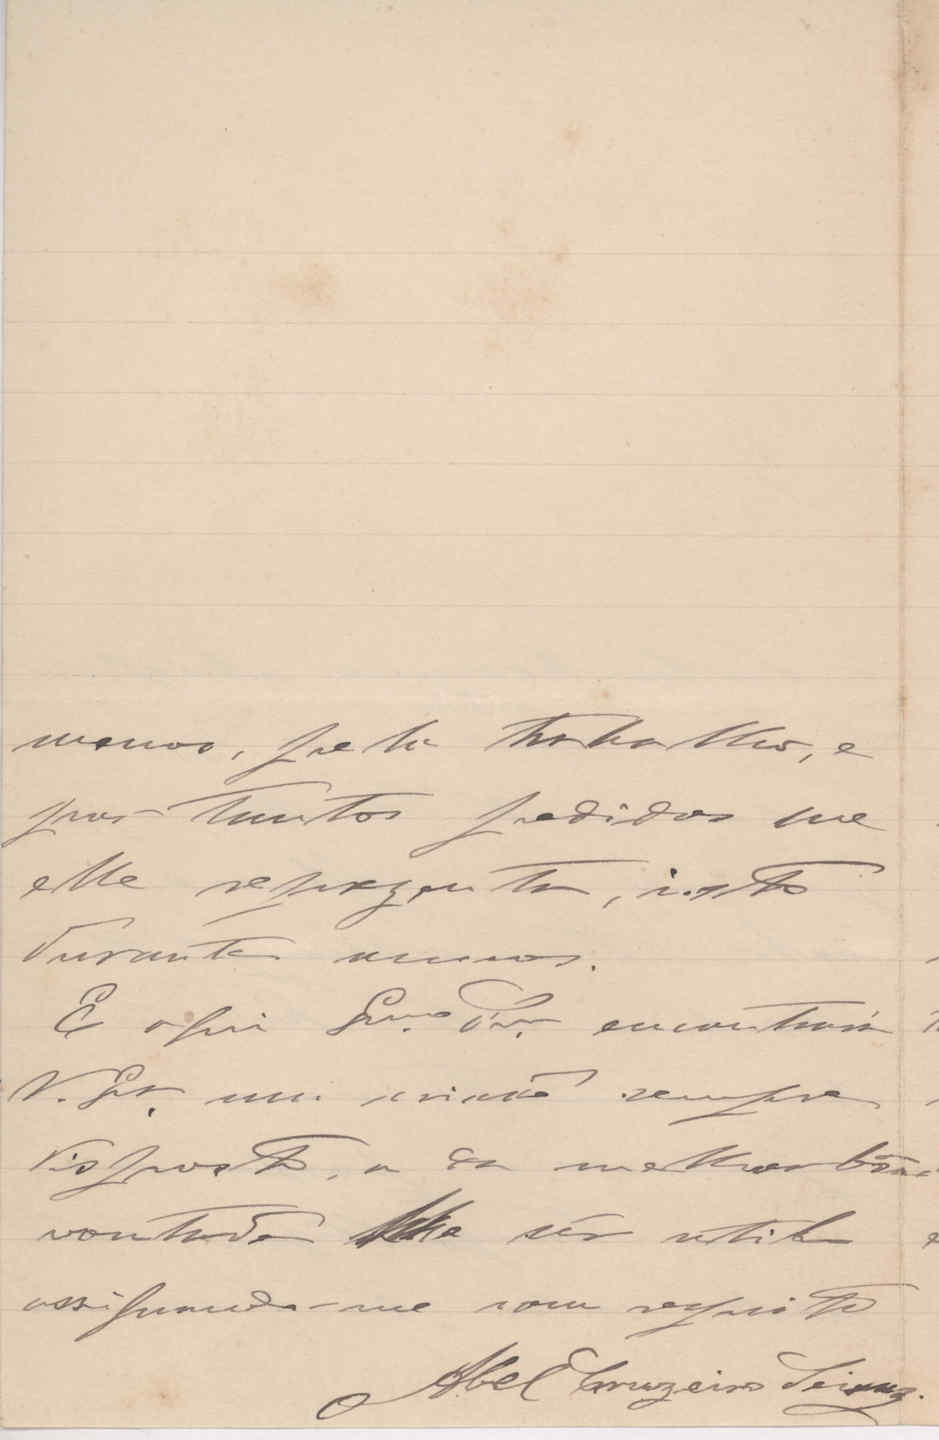 menos, pelo trabalho, e
por tantos pedidos me
elle reprezenta, isto
durante annos.
E aqui Exmo Snr. encontrará
V. Ex. um criado sempre
disposto, e da melhor bôa
vontade lhe sêr util e
assignando-me com respeito
Abel Cruzeiro